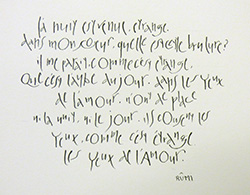 la nuit est venue. étrange.
dans mon coeur. quelle est cette brûlure?
il me paraît. comme c'est étrange.
Que c'est l'aube du jour. dans les yeux
de l'amour. n'ont de place
ni la nuit. ni le jour. ils cousent les
yeux. comme c'est étrange
les yeux de l'Amour.
RÛMI